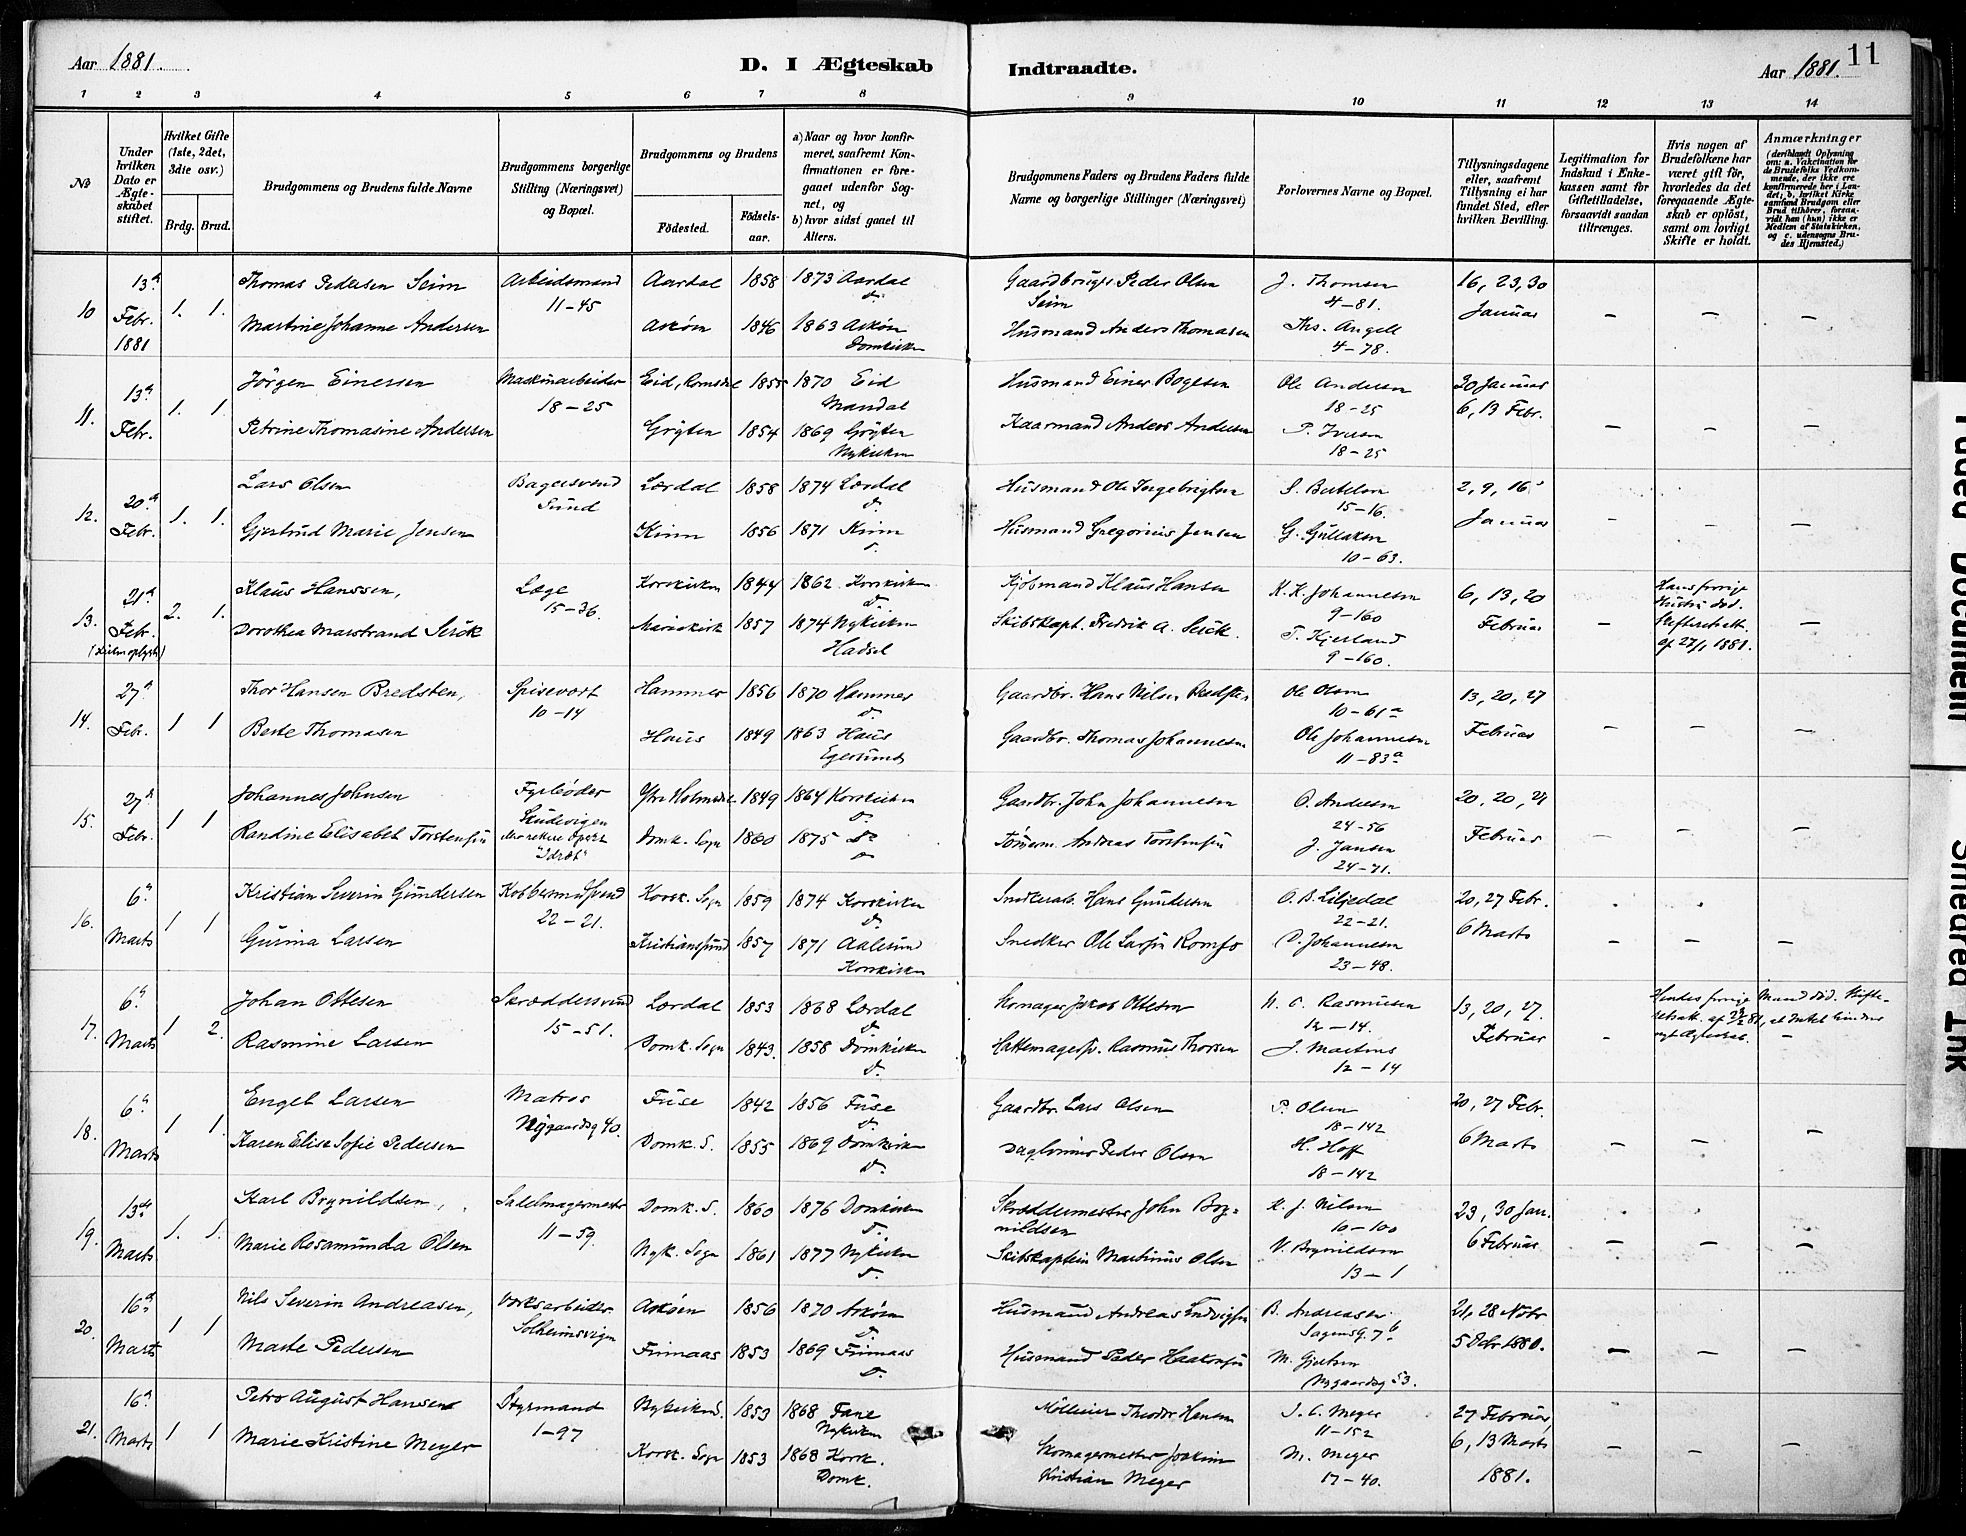 Aar 1881.
D. I Ægteskab Indtraadte.
Aar 1881.
11
1 2 3 4 5 6 7 8 9 10 11 12 13 14
No
Under hvilken Dato er Ægteskabet stiftet.
Hvilket Gifte (1ste, 2det, 3die osv.)
Brdg. Brud.
Brudgommens og Brudens fulde Navne
Brudgommens borgerlige Stilling (Næringsvei) og Bopæl.
Brudgommens og Brudens
Fødested.
Fødselsaar.
a) Naar og hvor konfirmeret, saafremt Konfirmationen er foregaaet udenfor Sognet, og
b) hvor sidst gaaet til Alters.
Brudgommens Faders og Brudens Faders fulde Navne og borgerlige Stillinger (Næringsvei)
Forlovernes Navne og Bopæl.
Tillysningsdagene eller, saafremt Tillysning ei har fundet Sted, efter hvilken Bevilling.
Legitimation for Indskud i Enkekassen samt for Giftetilladelse, forsaavidt saadan tiltrænges.
Hvis nogen af Brudefolkene har været gift før, hvorledes da det foregaaende Ægteskab er opløst, samt om lovligt Skifte er holdt.
Anmærkninger
(deriblandt Oplysning om: a. Vakcination for de Brudefolks Vedkommende, der ikke ere konfirmerede her i Landet; b. hvilket Kirkesamfund Brudgom eller Brud tilhører, forsaavidt han (hun) ikke er Medlem af Statskirken, og c. udensogns Brudes Hjemsted.)
10 13de Febr. 1881 1. 1. Thomas Pedersen Seim Arbeidsmand 11-45 Aardal 1858 1873 Aardal do. Gaardbruger Peder Olsen Seim J. Thomsen 4-81. 16, 23, 30 Januar
Martine Johanne Andersen Askøen 1846 1863 Askøen Domkirken Husmand Anders Thomasen Ths. Angell 4-78.
11. 13de Febr. 1. 1. Jörgen Einersen Maskinarbeider 18-25 Eid, Romsdal 1855 1870 Eid Mandal Husmand Einer Bogesen Ole Andersen 18-25 30 Januar 6, 13 Febr.
Petrine Thomasine Andersen Gryten 1854 1869 Gryten Nykirken Kaarmand Anders Andersen P. Iversen 18-25
12. 20de Febr. 1. 1. Lars Olsen Bagersvend Sund Lærdal 1858 1874 Lærdal do. Husmand Ole Ingebrigtsen S. Bertelsen 15-16. 2, 9, 16 Januar
Gjertrud Marie Jensen Kinn 1856 1871 Kinn do. Husmand Gregorius Jensen G. Gullaksen 10-63.
13. 21de Febr. 2. 1. Klaus Hanssen, Læge 15-36. Korskirken 1844 1862 Korskirken do. Kjøbmand Klaus Hansen K. K. Johannesen 9-160 6, 13, 20 Februar Hans forrige Hustru död. Skifteretsatt. af 27/1 1881.
Dorothea Marstrand Serck Mariekirk 1857 1874 Nykirken Hadsel Skibskapt. Fredrik A. Serck. T. Kjerland 9-160.
14. 27de Febr. 1 1 Thor Hansen Bredsten, Spisevært 10-14 Hammer 1856 1870 Hammer do. Gaardbr. Hans Nilsen Bredsten Ole Olsen 10-61a 13, 20, 27 Februar
Berte Thomasen Haus 1849 1863 Haus Egersund Gaardbr. Thomas Johannesen Ole Johannesen 11-83a
15. 27de Febr. 1 1 Johannes Johnsen Fyrböder Skudevigen "Idræt" Ytre Holmedal 1849 1864 Korskirken do. Gaardbr. John Johannesen O. Andersen 24-56 20, 20, 27 Februar
Randine Elisabet Torstensen Domk. Sogn 1860 1875 Do Tömerm. Andreas Torstensen J. Jansen 24-71.
16. 6te Marts 1 1 Kristian Severin Gundersen Kobbersmedsvend 22-21. Korsk. Sogn 1859 1874 Korskirken do. Snedkerarb. Hans Gundersen O. B. Liljedal 22-21. 20, 27 Febr. 6 Marts
Gurina Larsen Kristianssund 1857 1871 Aalesund Korskirken Snedker Ole Larsen Romfo D. Johannesen 23-48.
17. 6te Marts 1 2. Johan Ottesen Skræddersvend 15-51. Lærdal 1853 1868 Lærdal do. Skomager Jakob Ottesen N. C. Rasmusen 12-14. 13, 20, 27. Februar Hendes forrige Mand död. Skifteretsatt. af 22/2 81, at Intet hindrer nyt Ægteskab.
Rasmine Larsen Domk. Sogn 1843. 1858 Domkirken do. Hattemagersv. Rasmus Thorsen J. Martens 12-14
18. 6te Marts 1 1. Engel Larsen Matros Nygaardsg 40. Fuse 1842 1856 Fuse do. Gaardbr. Lars Olsen P. Olsen 18-142 20, 27 Febr. 6 Marts
Karen Elise Sofie Pedersen Domk. S. 1855 1869 Domkirken do. Daglönner Peder Olsen H. Hoff 18-142
19. 13de Marts 1. 1. Karl Brynildsen, Sadelmagermester 11-59. Domk. S. 1860 1876 Domkirken do. Skræddermester John Brynildsen K. J. Nilsen 10-100 23, 30 Jan. 6 Februar
Marie Rosamunda Olsen Nyk. Sogn 1861 1877 Nykirken do. Skibskaptein Martinus Olsen N. Brynildsen 13-1
20. 16de Marts 1 1 Nils Severin Andreasen, Værksarbeider Solheimsvigen Askøen 1856 1870 Askøen do. Husmand Andreas Ludvigsen B. Andreasen Sagensg. 7b 21, 28 Nobr 5 Debr 1880.
Marte Pedersen Finnaas 1853 1869 Finnaas do. Husmand Peder Haakonsen M. Gjertsen Nygaardsg 53.
21. 16de Marts 1 1 Petro August Hansen Styrmand 1-97 Nykirkens. 1853 1868 Fane Nykirken Möllerier Theodor Hansen J. C. Meyer 11-152 27 Februar, 6, 13 Marts 1881.
Marie Kristine Meyer Korsk. Sogn 1853 1868 Korsk. Domk. Skomagermester Joakim Kristian Meyer M. Meyer 17-40.
Faded Document
Smeared Ink